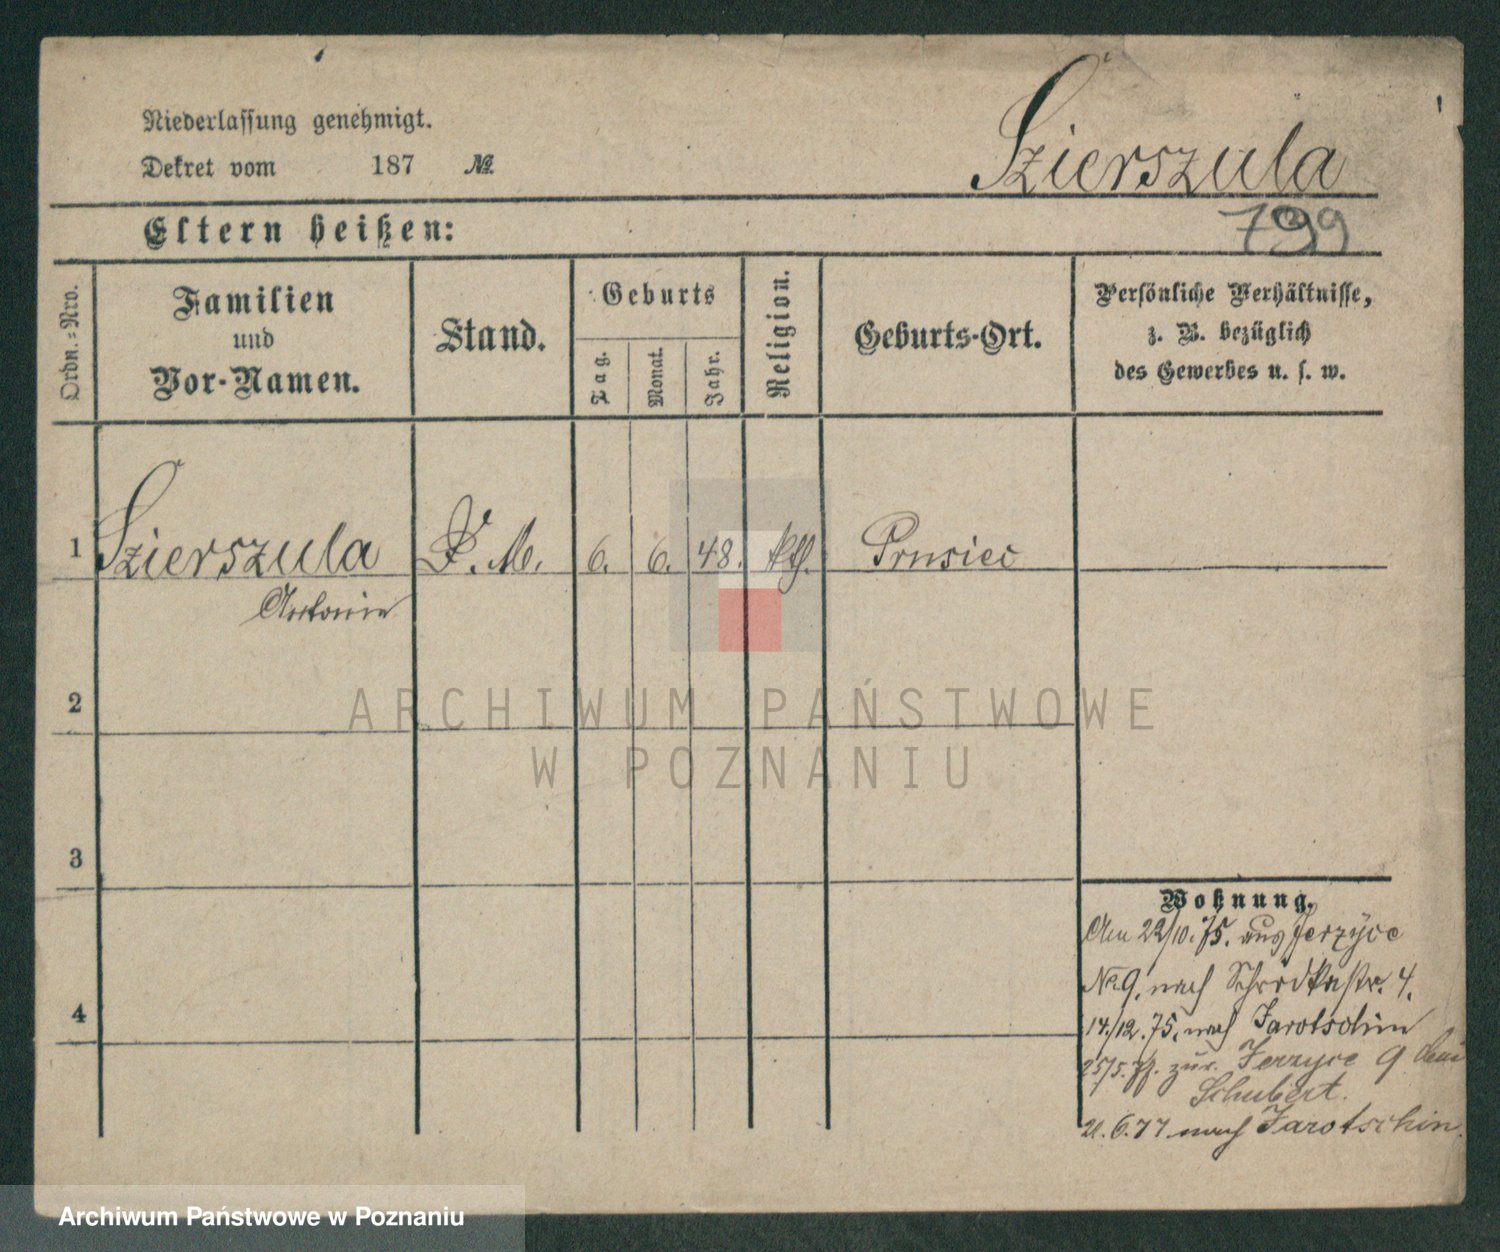 Niederlassung genehmigt.
Dekret vom 187 №
Szierszula
799
Eltern heißen:
Ordn.=Nro.
Familien
und
Vor-Namen.
Stand.
Geburts
Tag.
Monat.
Jahr.
Religion.
Geburts-Ort.
Persönliche Verhältnisse,
z. B. bezüglich
des Gewerbes u. s. w.
1 Szierszula D. M. 6. 6. 48. kth. Prusiec
Antonie
2
3
4
Wohnung.
Am 22/10. 75. aus Jerzyce
No 9. nach Schrodkastr. 4.
14./12. 75. nach Jarotschin
25/5. 77. zur. Jerzyce 9 bei
Schubert.
21. 6. 77 nach Jarotschin.
ARCHIWUM PAŃSTWOWE
W POZNANIU
Archiwum Państwowe w Poznaniu